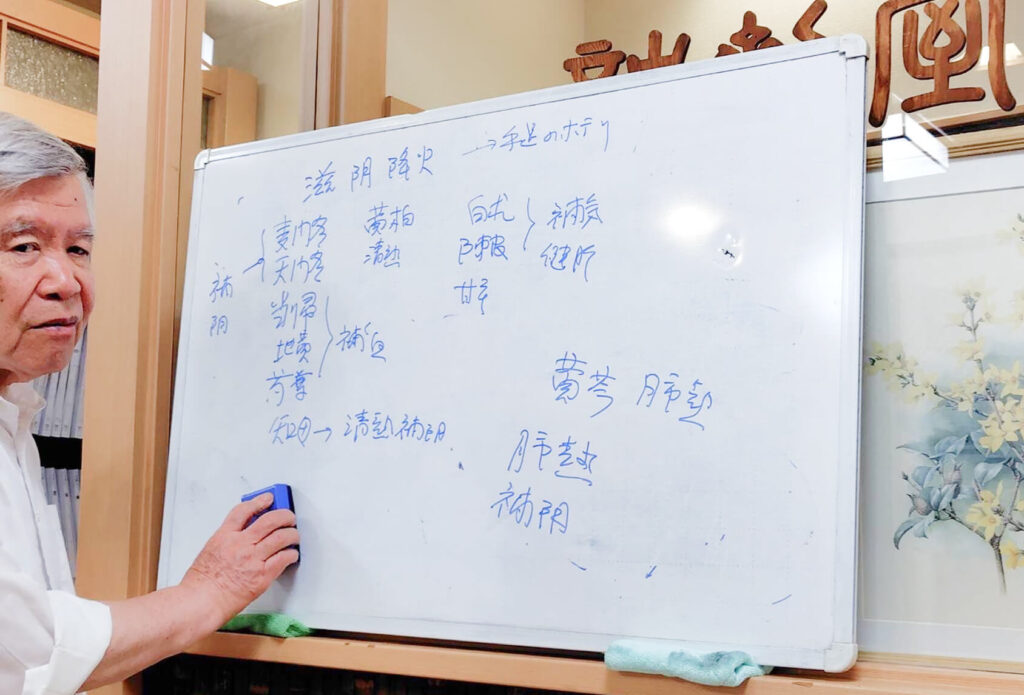 滋阴降火 →手足のホテリ
麦门冬 黄柏 白朮 補気
天门冬 清熱 陳皮 健脾
補阴
甘草
当帰
地黄 補血
芍薬
知母→清熱補阴
黄芩 肺熱
肺熱
補阴